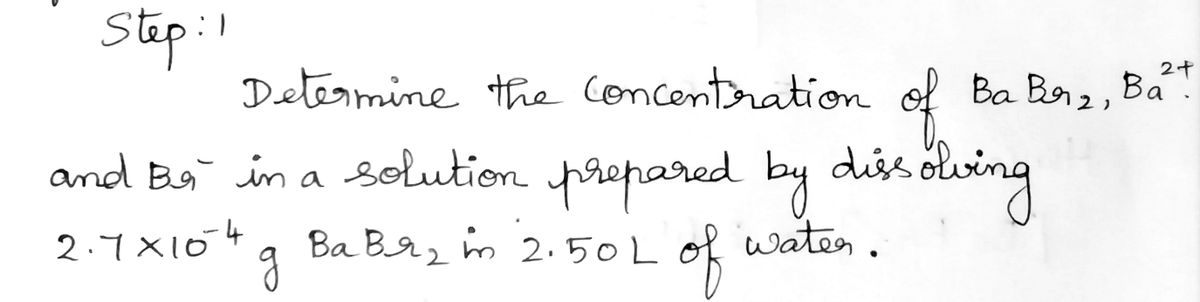 Step:1
Determine the Concentration of BaBr₂, Ba²⁺
and Br⁻ in a solution prepared by dissolving
2.7×10⁻⁴ g BaBr₂ in 2.50L of water.